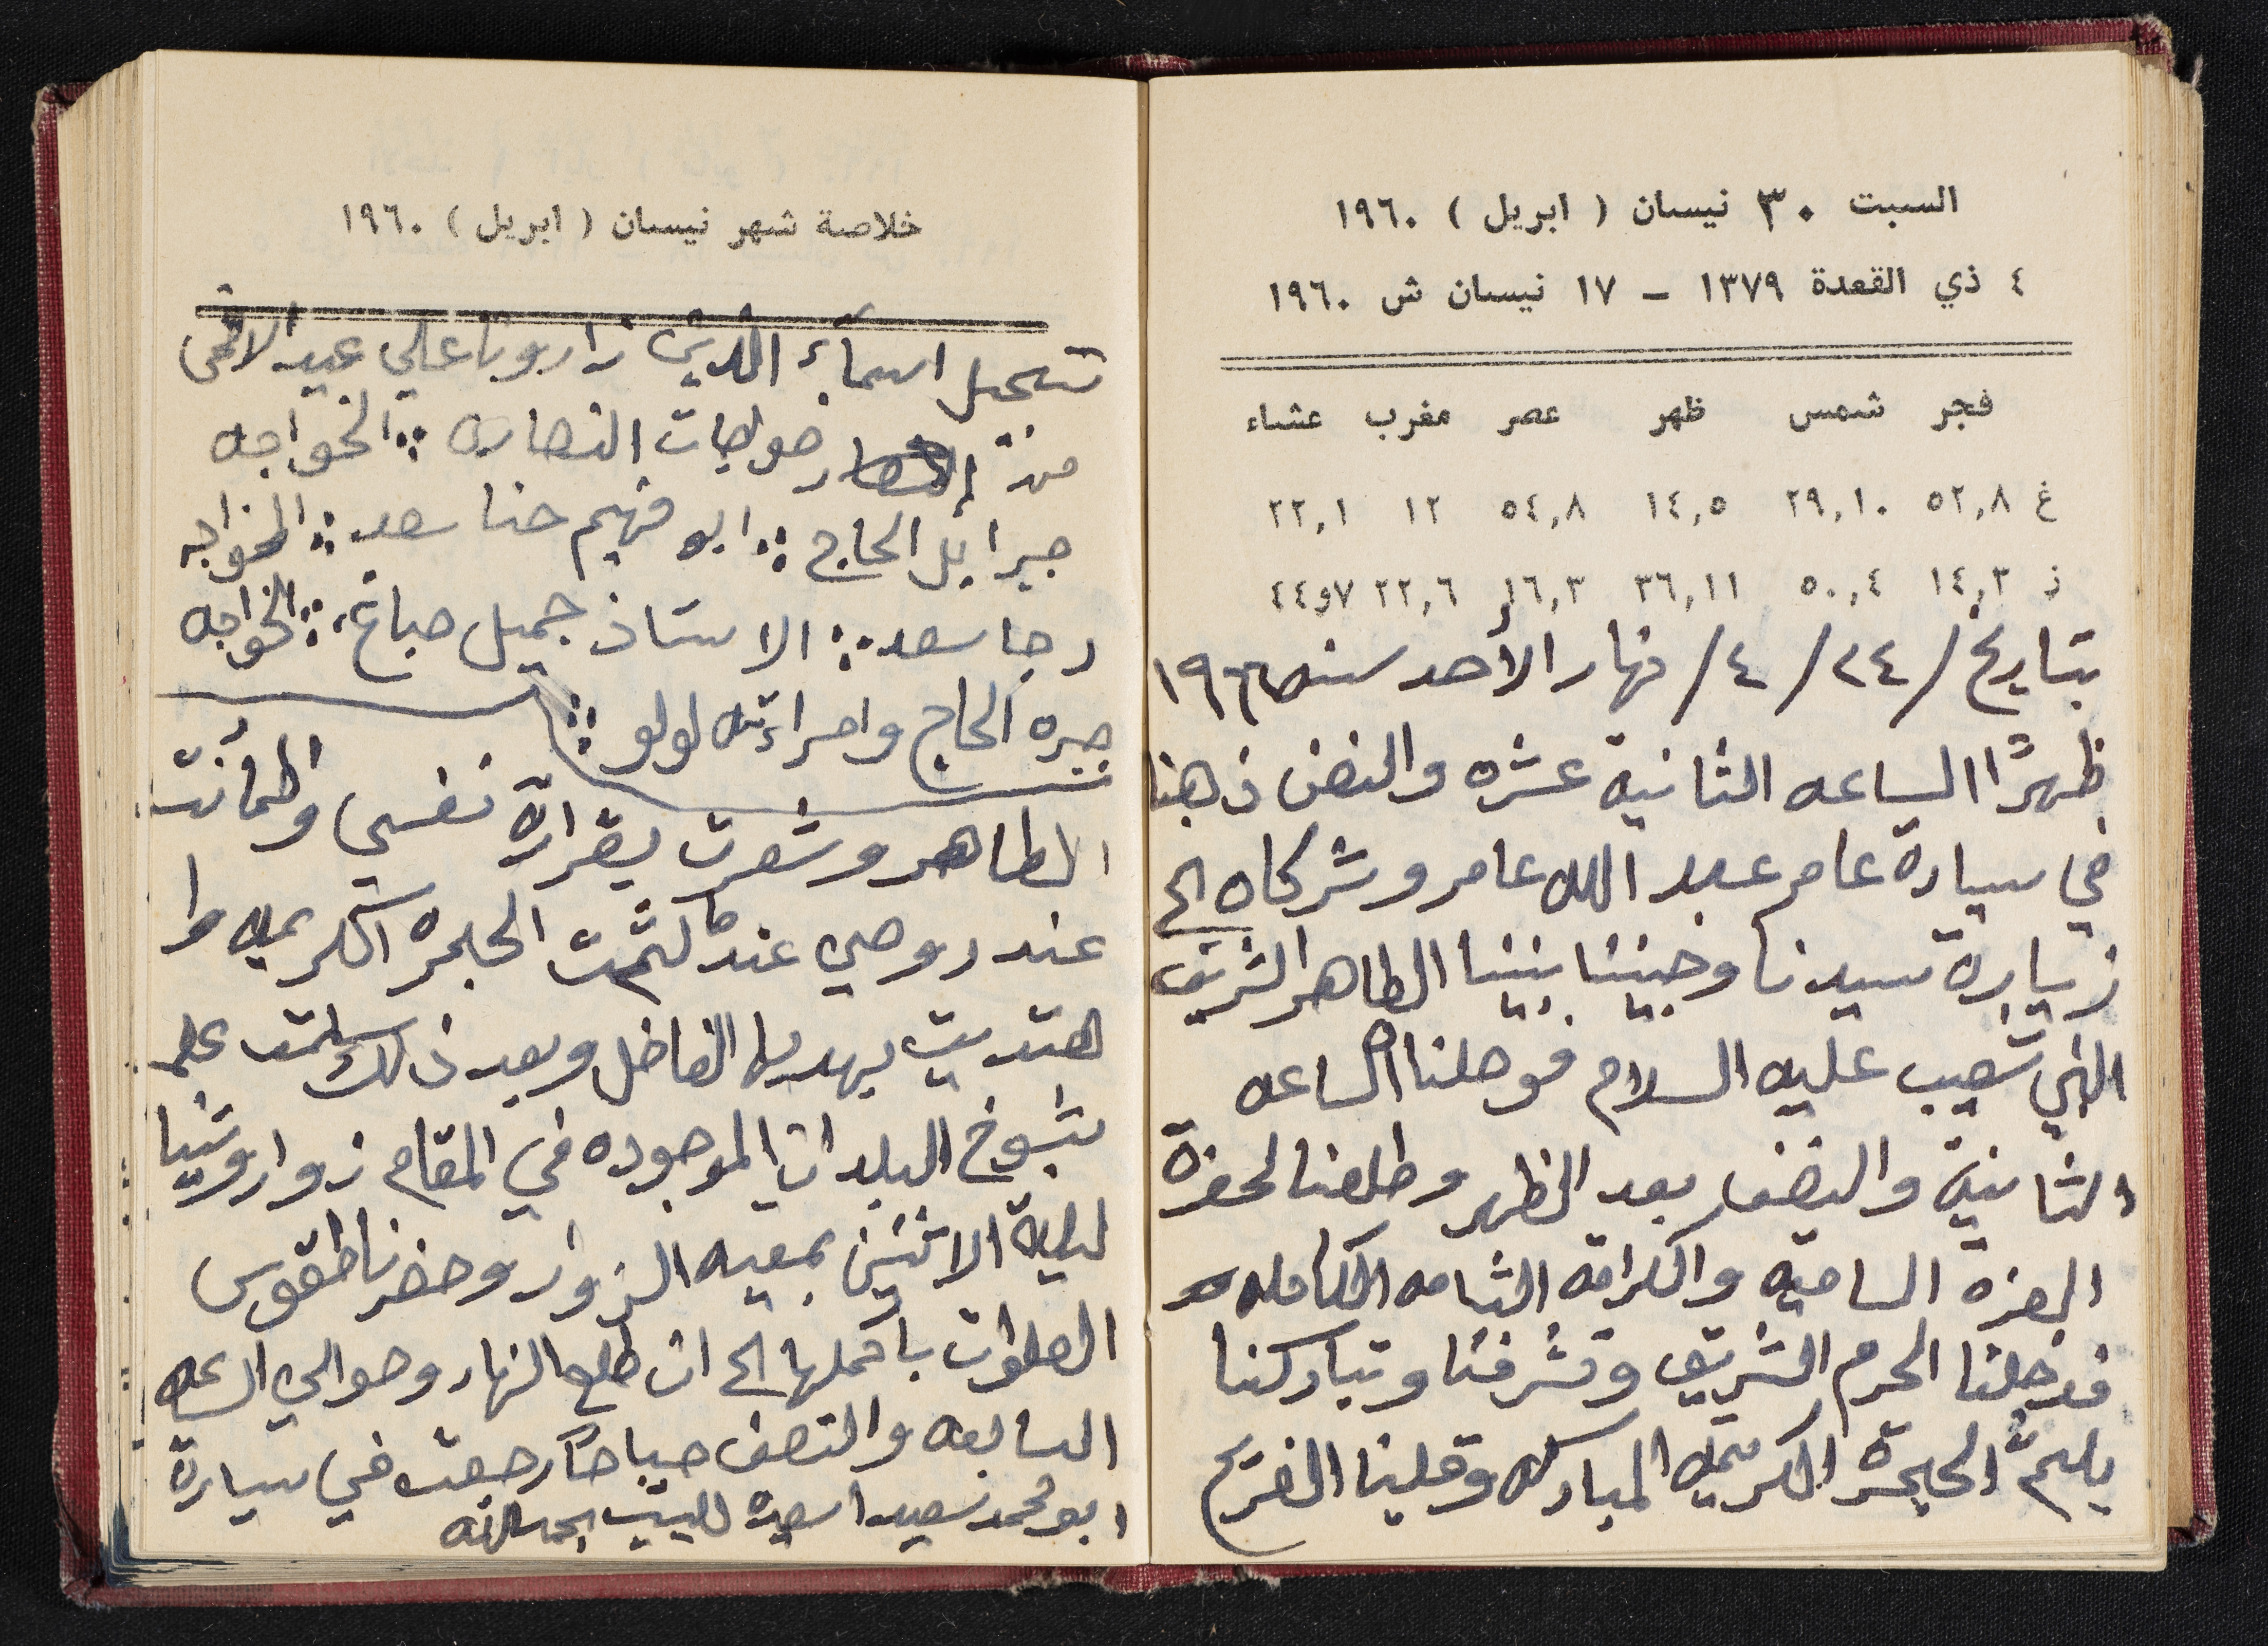 السبت ٣٠ نيسان ( ابريل ) ١٩٦٠
٤ ذي القعدة ١٣٧٩ – ١٧ نيسان ش ١٩٦٠
فجر شمس ظهر عصر مغرب عشاء
غ ٥٢,٨ ٢٩,١٠ ١٤,٥ ٥٤,٨ ١٢ ٢٢,١
ز ١٤,٣ ٥٠,٤ ٣٦,١١ ١٦,٣ ٢٢,٦ ٧و٤٤
بتاريخ / ٢٤ / ٤ / نهار الأحد سنه
ظهرًا الساعه الثانية عشره والنصف ذهبنا
في سيارة عامر عبد الله عامر وشركاه الى
زيارة سيدنا وحبيبنا نبينا الطاهر الشريف
النبي شعيب عليه السلام فوصلنا الساعه
الثانية والنصف بعد الظهر وطلعنا لحضرة
العزه الساميه والكرامه التامه الكامله
فدخلنا الحرم الشريف وتشرفنا وتباركنا
بلثم الحجرة الكريمه المباركه وقبلنا الضريح
خلاصة شهر نيسان ( ابريل ) ١٩٦٠
تسجيل اسمآء اللذين زاربونا على عيد الاضحى
من خواجات النصاره :: الخواجه
جبرايل الحاج :: ابو فهيم حنا سعد :: الخواجه
رجا سعد :: الاستاذ جميل صباغ :: الخواجه
جبره الحاج وامراءته لولو ::
الطاهر وشعرت بقرارة نفسي واطمأنت
عند روحي عندما لثمت الحجره الكريمه وا
هتديت بهديها الفاضل وبعد ذلك سلمت على
شيوخ البلدان الموجوده في المقام زوار وتنيا
ليلية الاثنين بمعيه الزوار وحضرنا طقوس
الصلوات باكملها الى ان طلع النهار وحوالي الساعه
السابعه والنصف صباحًا رجعت في سيارة
ابو محمد سعيد اسعيد للبيت بحمد الله